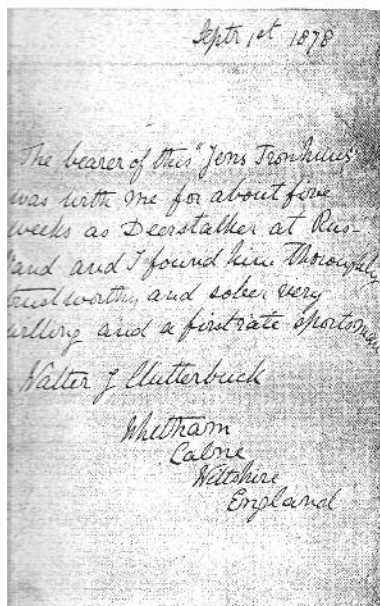 Septr 1st 1878
The bearer of this "Jens Tronhuus"
was with me for about five
weeks as Deerstalker at Rus-
land and I found him thoroughly
trustworthy and sober very
willing and a first rate sportsman
Walter J Clutterbuck
Whetham
Calne
Wiltshire
England